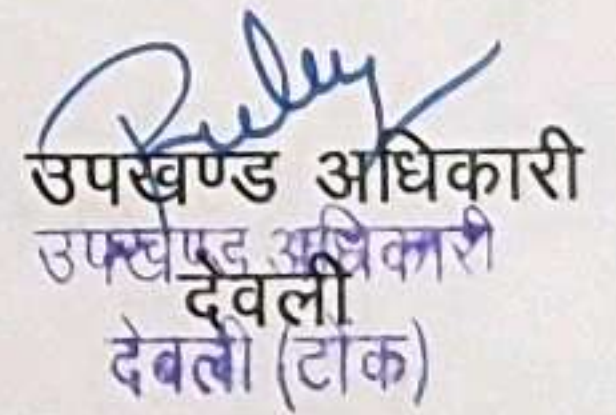 उपखण्ड अधिकारी
उपखण्ड अधिकारी
देवली
देवली (टोंक)